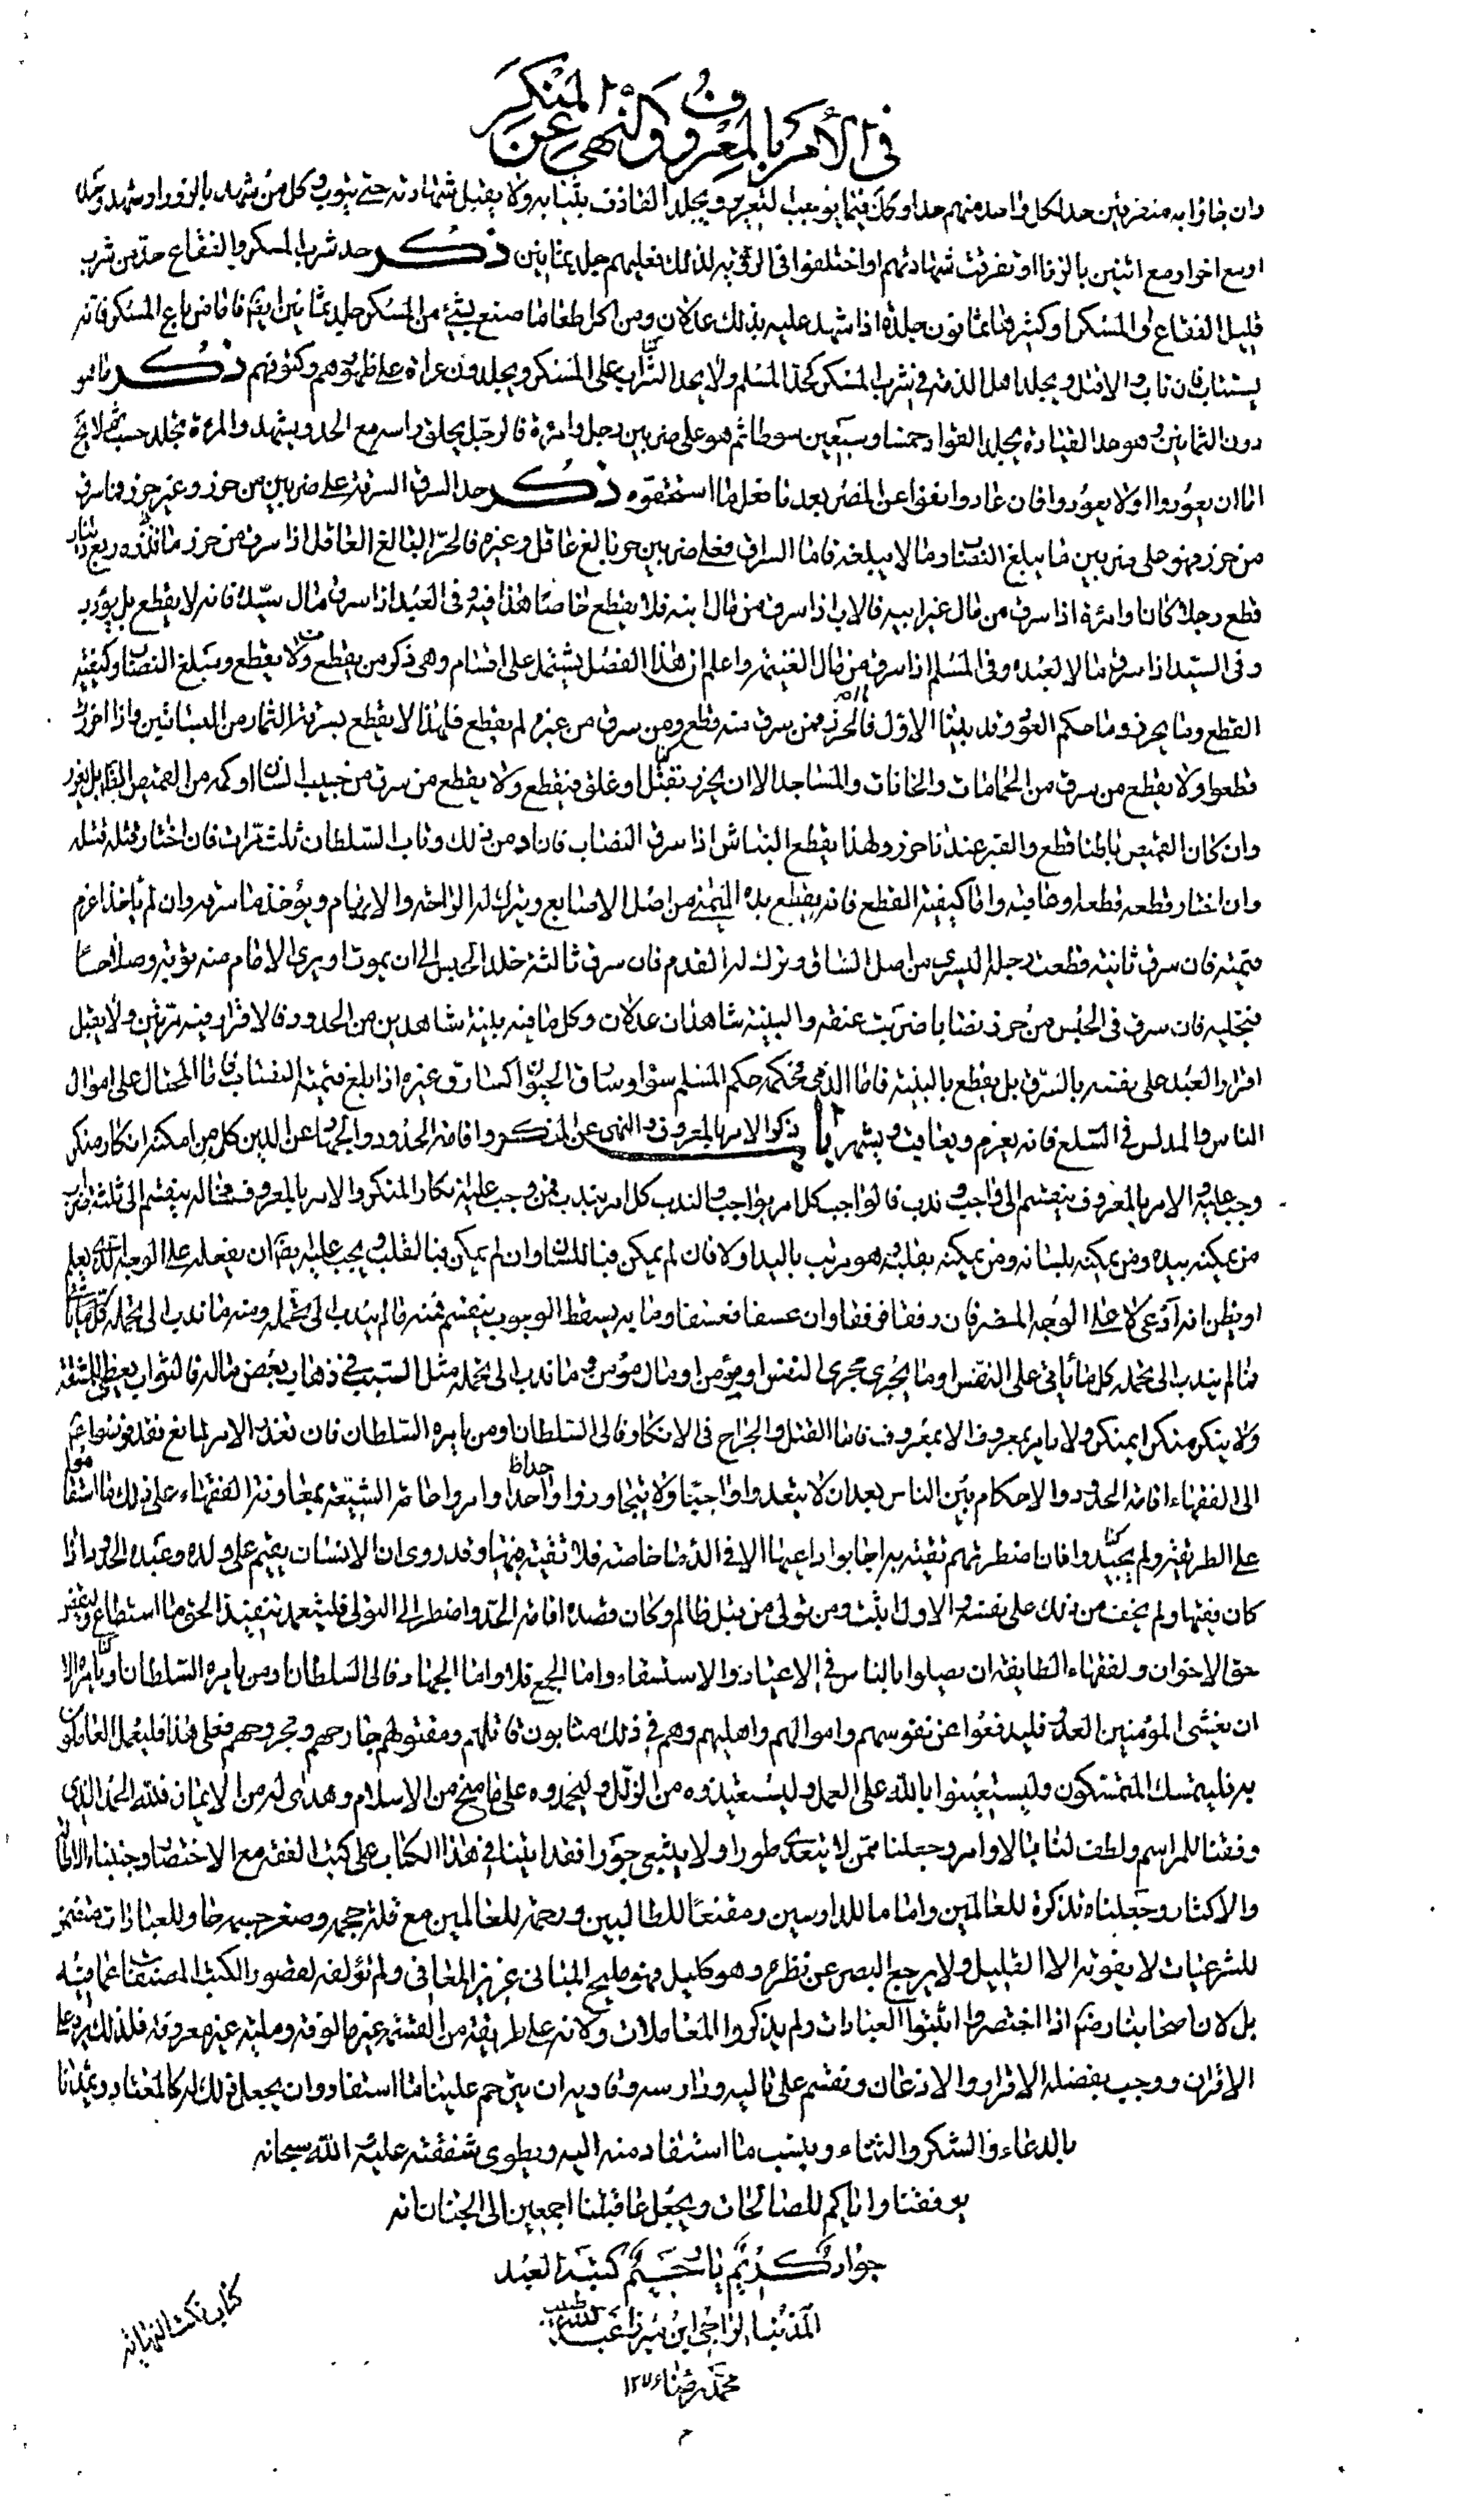 في الأمر بالمعروف والنهي عن المنكر
وان جاؤا به متفرقين حد لكل واحد منهم حدا وكان فيما يوجب التعزير ويجلد القاذف بثيابه ولا يقبل شهادته حتى يتوب وكل من شهد بالزور او شهد وحده
او مع اخر او مع اثنين بالزنا او تفرقت شهادتهم او اختلفوا في الرؤية لذلك فعليهم جلد ثمانين ذكر حد شرب المسكر والفقاع حد من شرب
قليل الفقاع او المسكر او كثيرهما ثمانون جلدة اذا شهد عليه بذلك عدلان ومن اكل طعاما صنع بشيء من المسكر جلد ثمانين ايضا فاما من باع المسكر فانه
يستتاب فان تاب والا قتل ويجلد اهل الذمة في شرب المسكر كحد المسلم ولا يحد الشراب على المسكر ويجلدون عراة على ظهورهم وكتوفهم ذكر ما هو
دون الثمانين وهو حد القيادة يجلد القواد خمسا وسبعين سوطا ثم هو على ضربين رجل وامرءة فالرجل يحلق راسه مع الحد ويشهر والمرءة تجلد حسب ثم لا يخ
اما ان يعودوا او لا يعودوا فان عادوا نفوا عن المصر بعد فعل ما استحقوه ذكر حد السرق السرقة على ضربين من حرز وغير حرز فما سرق
من حرز فهو على ضربين ما يبلغ النصاب وما لا يبلغه فاما السارق فعلى ضربين حر بالغ عاقل وغيره فالحر البالغ العاقل اذا سرق من حرز ما قدره ربع دينار
قطع رجلا كان او امرءة اذا سرق من مال غير ابنه فالاب اذا سرق من مال ابنه فلا يقطع خاصا هذا فيه وفي العبد اذا سرق مال سيده فانه لا يقطع بل يؤدب
وفي السيد اذا سرق مالا لعبده وفي المسلم اذا سرق من مال الغنيمة واعلم ان هذا الفصل يشتمل على اقسام وهي ذكر من يقطع ومن لا يقطع ومبلغ النصاب وكيفية
القطع وما يحرز وما حكم العود وقد بينا الاول فالحرز فمن سرق منه قطع ومن سرق من غيره لم يقطع فلهذا لا يقطع بسرقة الثمار من البساتين واذا احرزت
قطعوا ولا يقطع من سرق من الحمامات والخانات والمساجد الا ان يحرز بقفل او غلق فيقطع ولا يقطع من سرق من جيب انسان او كمه من القميص الظاهر بل يعزر
وان كان القميص باطنا قطع والقبر عندنا حرز ولهذا يقطع النباش اذا سرق النصاب فان ادمن ذلك وفات السلطان ثلث مرات فان اختار قتله قتله
وان اختار قطعه قطعه او عاقبه واما كيفية القطع فانه يقطع يده اليمنى من اصل الاصابع ويترك له الراحة والابهام ويؤخذ ما سرقه وان لم يؤخذ اغرم
قيمته فان سرق ثانية قطعت رجله اليسرى من اصل الساق وترك له القدم فان سرق ثالثة خلد الحبس الى ان يموت او يرى الامام منه توبة وصلاحا
فيخليه فان سرق في الحبس من حرز نصابا ضربت عنقه والبينة شاهدان عدلان وكل ما فيه بينة شاهدين من الحدود فالاقرار فيه مرتين ولا يقبل
اقرار العبد على نفسه بالسرق بل يقطع بالبينة فاما الذمي فحكمه حكم المسلم سواء
الناس والمدلس في السلع فانه يغرم ويعاقب ويشهر باب ذكر الامر بالمعروف والنهي عن المنكر واقامة الحدود والجهاد عن الدين كل من امكنه انكار منكر
وجب عليه والامر بالمعروف ينقسم الى واجب وندب فالواجب كل امر بواجب والندب كل امر بندب فمن وجب عليه انكار المنكر والامر بالمعروف فحاله ينقسم الى ثلثة اضرب
من يمكنه بيده ومن يمكنه بلسانه ومن يمكنه بقلبه وهو مرتب باليد اولا فان لم يمكن فباللسان وان لم يمكن فبالقلب ويجب عليه ايضا ان يفعله على الوجه الذي يعلم
او يظن انه ادعى لا على الوجه المضر فان رفقا فرفقا وان عسفا فعسفا وما به يسقط الوجوب ينقسم فمنه ما لم يندب الى تحمله ومنه ما ندب الى تحمله
فما لم يندب الى تحمله كل ما ياتي على النفس او ما يجري مجرى النفس او مؤمن او مال مؤمن وما ندب الى تحمله مثل السب وذهاب بعض ماله فالثواب يعظم بالمشقة
ولا ينكر منكرا بمنكر ولا يامر بمعروف الا بمعروف فاما القتل والجراح في الانكار فالى السلطان ومن يامره السلطان فان تعذر الامر لمانع فقد فوضوا عم
الى الفقهاء اقامة الحدود والاحكام بين الناس بعد ان لا يتعدوا واجبا ولا يتجاوزوا حدا وامروا عامة الشيعة بمعاونة الفقهاء على ذلك ما استقاموا
على الطريقة ولم يحيدوا فان اضطرتهم تقية به اجابوا داعيها الا في الدماء خاصة فلا تقية فيها وقد روي ان الانسان يقيم على ولده وعبده الحدود اذا
كان فقيها ولم يخف من ذلك على نفسه والاول اثبت ومن تولى من قبل ظالم وكان قصده اقامة الحد او اضطر الى التولي فليتعمد تنفيذ الحق ما استطاع وليقض
حق الاخوان ولفقهاء الطايفة ان يصلوا بالناس في الاعياد والاستسقاء واما الجمع فلا واما الجهاد فالى السلطان او من يامره السلطان الا
ان يغشى المؤمنين العدو فليدفعوا عن نفوسهم واموالهم واهليهم وهم في ذلك مثابون قاتلهم ومقتولهم جارحهم ومجروحهم فعلى هذا فليعمل العاملون
به فليتمسك المتمسكون وليستعينوا بالله على العمل وليستعيذوه من الزلل وليحمدوه على ما منح من الاسلام وهدى له من الايمان فلله الحمد الذي
وفقنا للمراسم ولطف لنا بالاوامر وجعلنا ممن لا يتعدى طورا ولا يبغي جورا فقد اتينا في هذا الكتاب على كتب الفقه مع الاختصار وجنبناه الاطالة
والاكثار وجعلناه تذكرة للعالمين واماما للدارسين ومقنعا للطالبين ورحمة للعالمين مع قلة حجمه وصغر جسمه حاو للعبادات متضمن
للشرعيات لا يفوته الا القليل ولا يرجع البصر عن نظره وهو كليل فهو مليح المباني عزيز المعاني ولم نؤلفه لقصور الكتب المصنفة عما فيه
بل لان اصحابنا رضهم اذا اختصروا اثبتوا العبادات ولم يذكروا المعاملات ولانه على طريقة من القسمة غير مالوفة ومليئة غير معروفة فلذلك يزيد على
الاقران ووجب بفضله الاقرار والاذعان ونقسم على تاليه ودارسه وقاريه ان يترحم علينا ما استفاد وان يجعل ذلك له كالمعتاد ويمدنا
بالدعاء والشكر والثناء وينسب ما استفاد منه اليه ويطوي شفقته عليه الله سبحانه
يوفقنا واياكم للصالحات ويجعل عاقبتنا اجمعين الى الجنات انه
جواد كريم يا رحيم كتبه العبد
المذنب الراجي ابن ميرزا عبد الله طبيب
محمد رضا ١٢٧٦
كتاب نكت النهاية